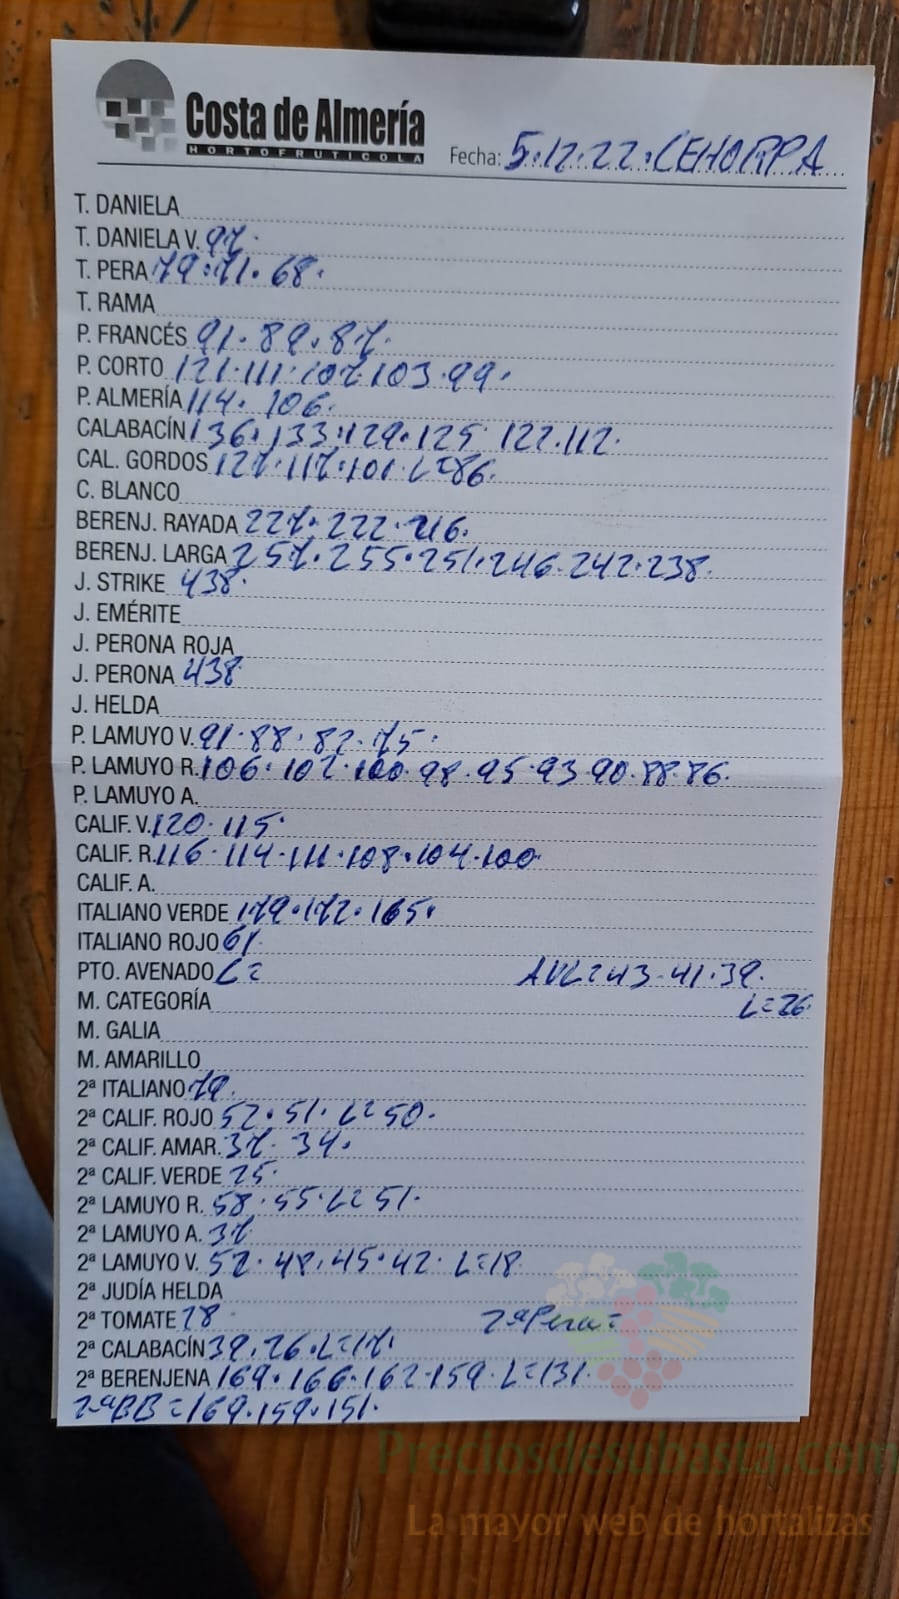 Costa de Almería
HORTOFRUTICOLA
Fecha: 5.12.22. CEHORPA
T. DANIELA
T. DANIELA V. 97.
T. PERA 79.71.68.
T. RAMA
P. FRANCÉS 91.89.87.
P. CORTO 121.111.107.103.99.
P. ALMERÍA 114.106.
CALABACÍN 136.133.129.125.122.112.
CAL. GORDOS 127.117.101.L=86.
C. BLANCO
BERENJ. RAYADA 227.222.216.
BERENJ. LARGA 257.255.251.246.242.238.
J. STRIKE 438.
J. EMÉRITE
J. PERONA ROJA
J. PERONA 438
J. HELDA
P. LAMUYO V. 91.88.82.75.
P. LAMUYO R. 106.102.100.98.95.93.90.88.86.
P. LAMUYO A.
CALIF. V. 120.115.
CALIF. R. 116.114.111.108.104.100.
CALIF. A.
ITALIANO VERDE 179.172.165.
ITALIANO ROJO 67.
PTO. AVENADO L= AVL=43.41.39.
M. CATEGORÍA L=26.
M. GALIA
M. AMARILLO
2ª ITALIANO 79.
2ª CALIF. ROJO 52.51.L=50.
2ª CALIF. AMAR. 37.34.
2ª CALIF. VERDE 25.
2ª LAMUYO R. 58.55.L=51.
2ª LAMUYO A. 37
2ª LAMUYO V. 52.48.45.42.L=18.
2ª JUDÍA HELDA
2ª TOMATE 28. 2ª Pera=
2ª CALABACÍN 39.26.L=17.
2ª BERENJENA 169.166.162.159.L=131.
2ª BB=169.159.151.
Preciosdesubasta.com
La mayor web de hortalizas